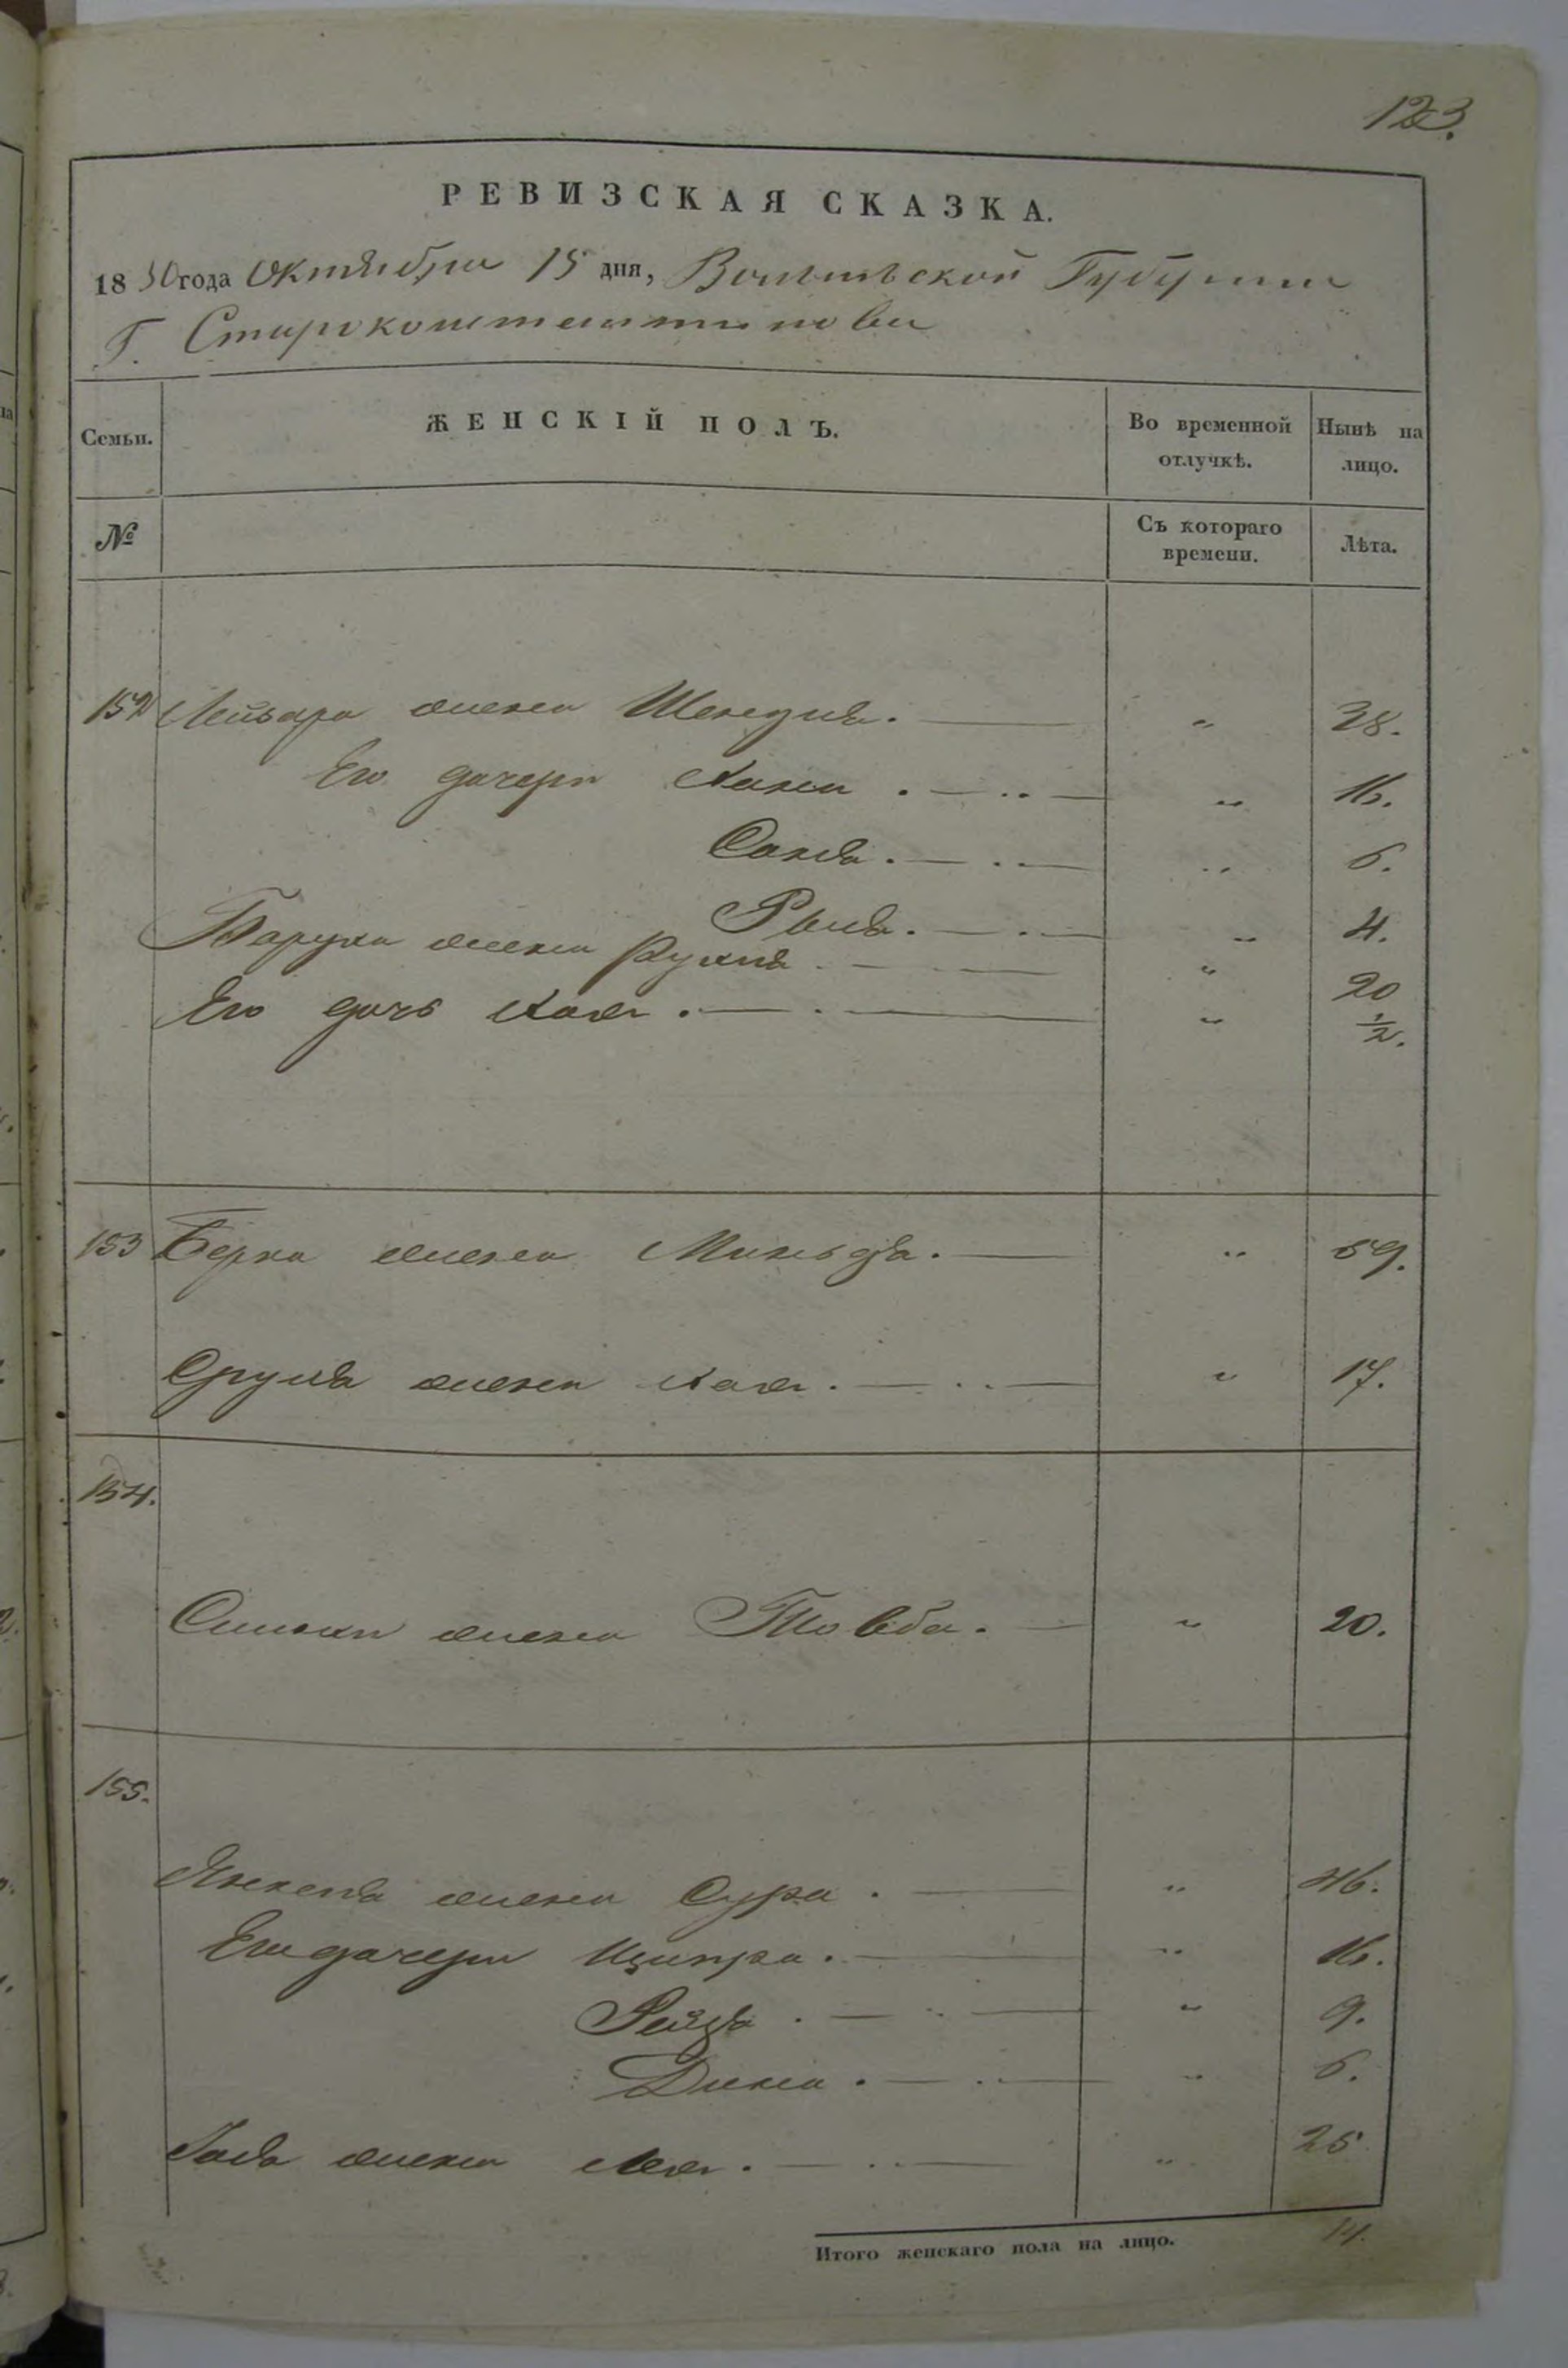 123.
РЕВИЗСКАЯ СКАЗКА.
1850 года Октября 15 дня, Волынской Губернии
Г. Староконстантинова
Семьи.
ЖЕНСКІЙ ПОЛЪ.
Во временной отлучкѣ.
Нынѣ на лицо.
№
Съ котораго времени.
Лѣта.
152 жена „ 38.
Его дочери Хана . „ 16.
Сося . „ 6.
„ 4.
Баруха жена Рухля . „ 20
Его дочь Хая . „ ½.
153 Берка жена Миндля . „ 59.
Срула жена Хая . „ 17.
154.
жена Товба . „ 20.
155.
Янкеля жена Сура . „ 46.
Его дочери Ципра . „ 16.
Рейзя . „ 9.
Дина . „ 6.
жена Лея . „ 25
Итого женскаго пола на лицо. 14.